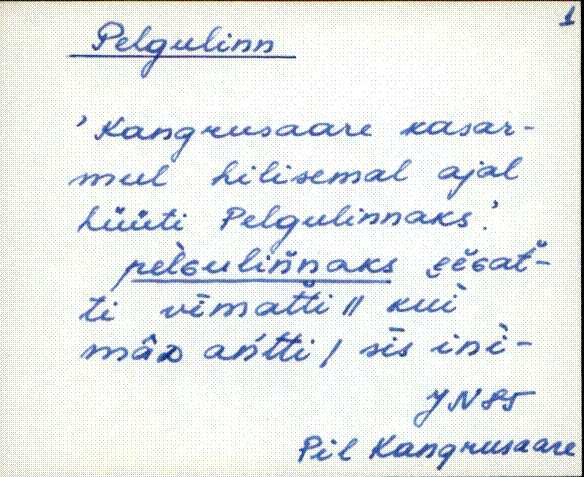 1
Pelgulinn
'Kangrusaare kasar-
mul hilisemal ajal
hüüti Pelgulinnaks.'
pèlɢulin̄naks
ti vīmat̄ti || kuì
mâᴅ ańtti / sīs inì-
JN 85
Pil Kangrusaare